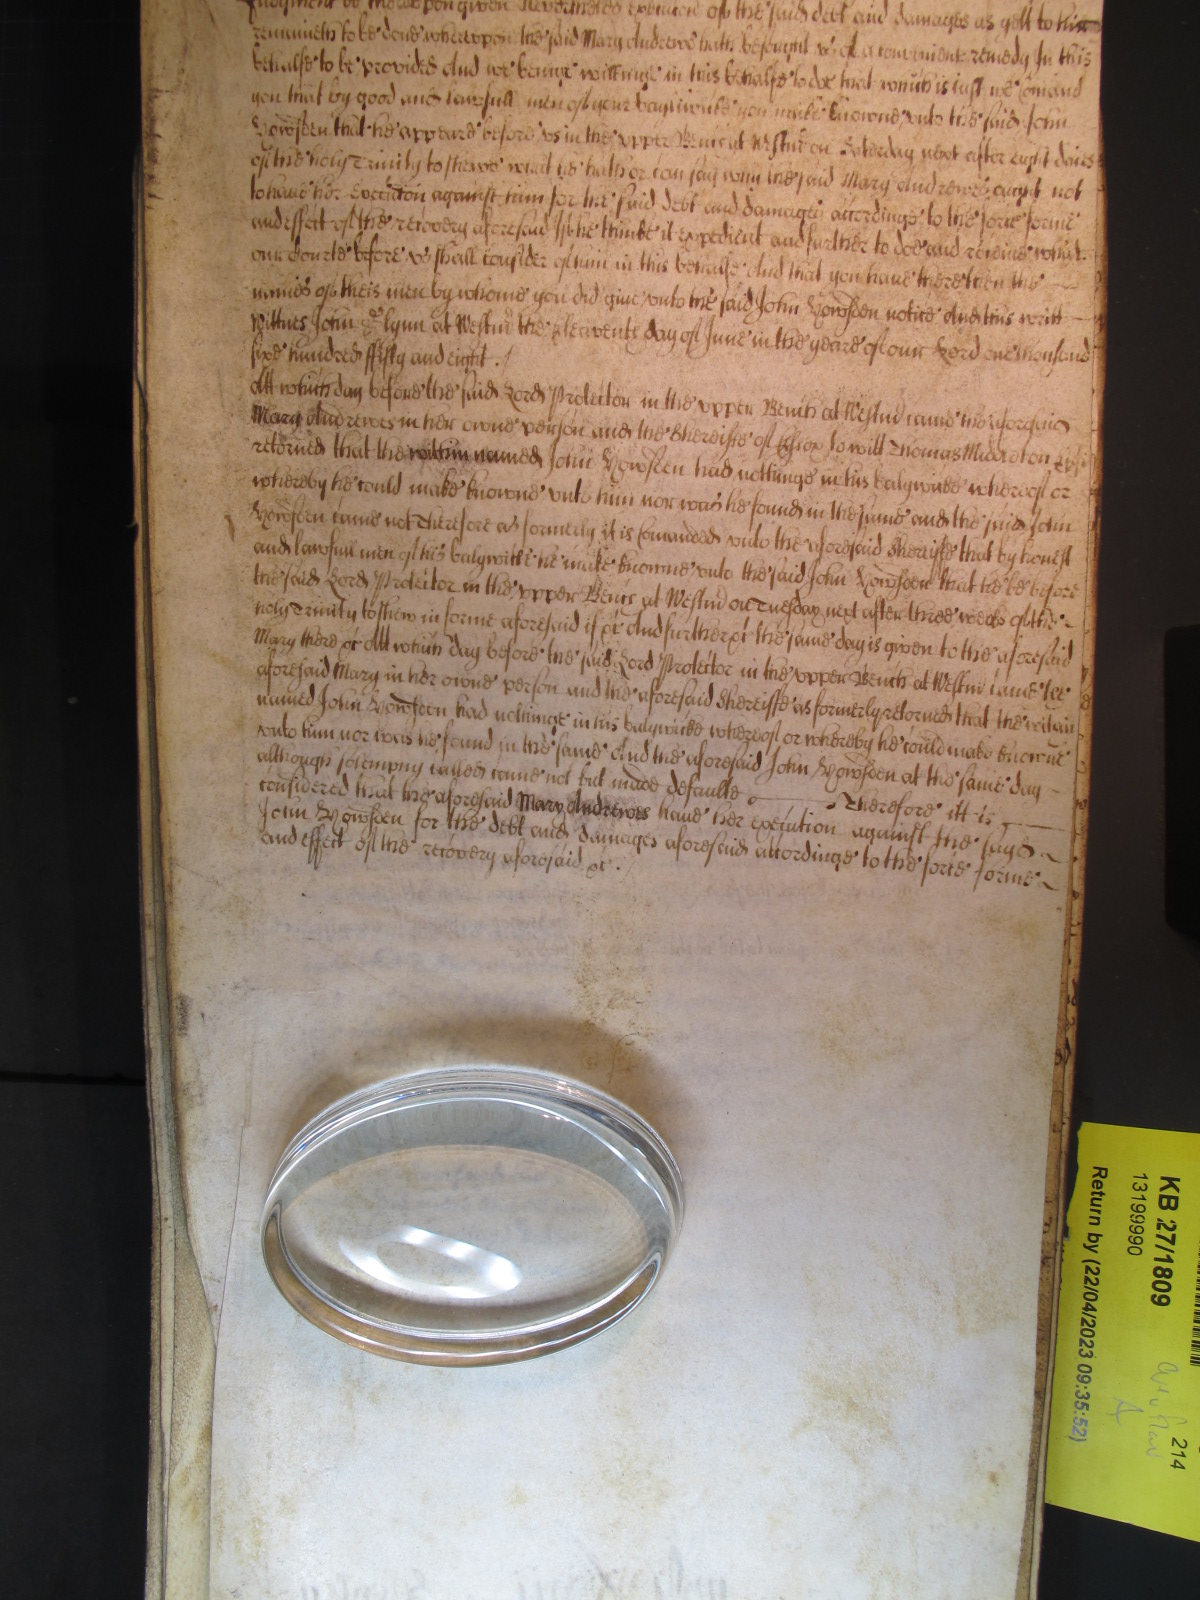 Judgment be thereupon given Neverthelesse execucion of the said debt and damages as yett to him
remaineth to be done whereupon the said Mary Andrewes hath besought vs of a convenient remedy In this
behalfe to be provided And we beinge willinge in this behalfe to doe that which is iust we comand
you that by good and lawfull men of your baylywicke you make knowne vnto the said John
that he appeare before vs in the vpper Bench at Westmr on Saturday next after Eight daies
of the holy Trinity to shewe what he hath or can say why the said Mary Andrewes ought not
to have her Execucion against him for the said debt and damages accordinge to the force forme
and effect of the recovery aforesaid If he thinke it expedient and further to doe and receive what
our Courte before vs shall consider of him in this behalfe And that you have there then the
names of theis men by whome you did give vnto the said John notice And this writt
Wittnes John Glynn at Westmr the day of June in the yeare of our Lord one thousand
sixe hundred fifty and eight
Att which day before the said Lord Protector in the vpper Bench at Westmr came the aforesaid
Mary Andrewes in her owne person and the Shereiffe to witt Thomas Middleton
returned that the within named John had nothinge in his baylywicke whereof or
whereby he could make knowne vnto him nor was he found in the same and the said John
came not Therefore as formerly it is comanded vnto the aforesaid Shereiffe that by honest
and lawfull men of his baylywicke he make knowne vnto the said John that he be before
the said Lord Protector in the vpper Bench at Westmr on Tuesday next after three weeks of the
holy Trinity to shew in forme aforesaid if &c And further &c the same day is given to the aforesaid
Mary there &c Att which day before the said Lord Protector in the vpper Bench at Westmr came the
aforesaid Mary in her owne person and the aforesaid Shereiffe as formerly retorned that the within
named John had nothinge in his baylywicke whereof or whereby he could make knowne
vnto him nor was he found in the same And the aforesaid John at the same day
although solempny called came not but made defaulte Therefore itt is
considered that the aforesaid Mary Andrewes have her execution against the said
John for the debt and damages aforesaid accordinge to the force forme
and effect of the recovery aforesaid &c.
KB 27/1809
13199990
Return by (22/04/2023 09:35:52)
214
A